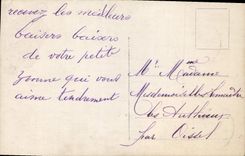 recevez les meilleurs
baisers baisers
de votre petite
Yvonne qui vous
aime tendrement
Mr Madame
Mademoiselle
les
par Oissel